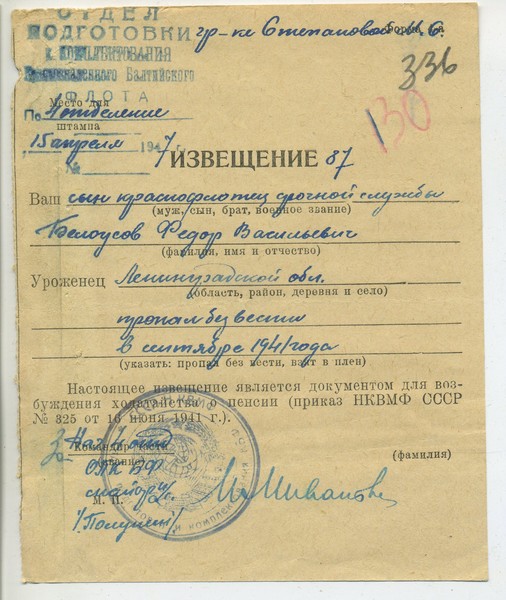 ОТДЕЛ
ПОДГОТОВКИ
И КОМПЛЕКТОВАНИЯ
Краснознаменного Балтийского
ФЛОТА
гр-ке Степановой М. С.
Форма
336
130
Место для
По 1 отделение
штампа
15 апреля 1947
№
ИЗВЕЩЕНИЕ 87
Ваш сын краснофлотец срочной службы
(муж, сын, брат, военное звание)
Белоусов Федор Васильевич
(фамилия, имя и отчество)
Уроженец Ленинградской обл.
(область, район, деревня и село)
пропал без вести
в сентябре 1941 года
(указать: пропал без вести, взят в плен)
Настоящее извещение является документом для воз-
буждения ходатайства о пенсии (приказ НКВМФ СССР
№ 325 от 16 июня 1941 г.).
Командир части
(звание)
(фамилия)
ОПК КБФ
майор
М. П.